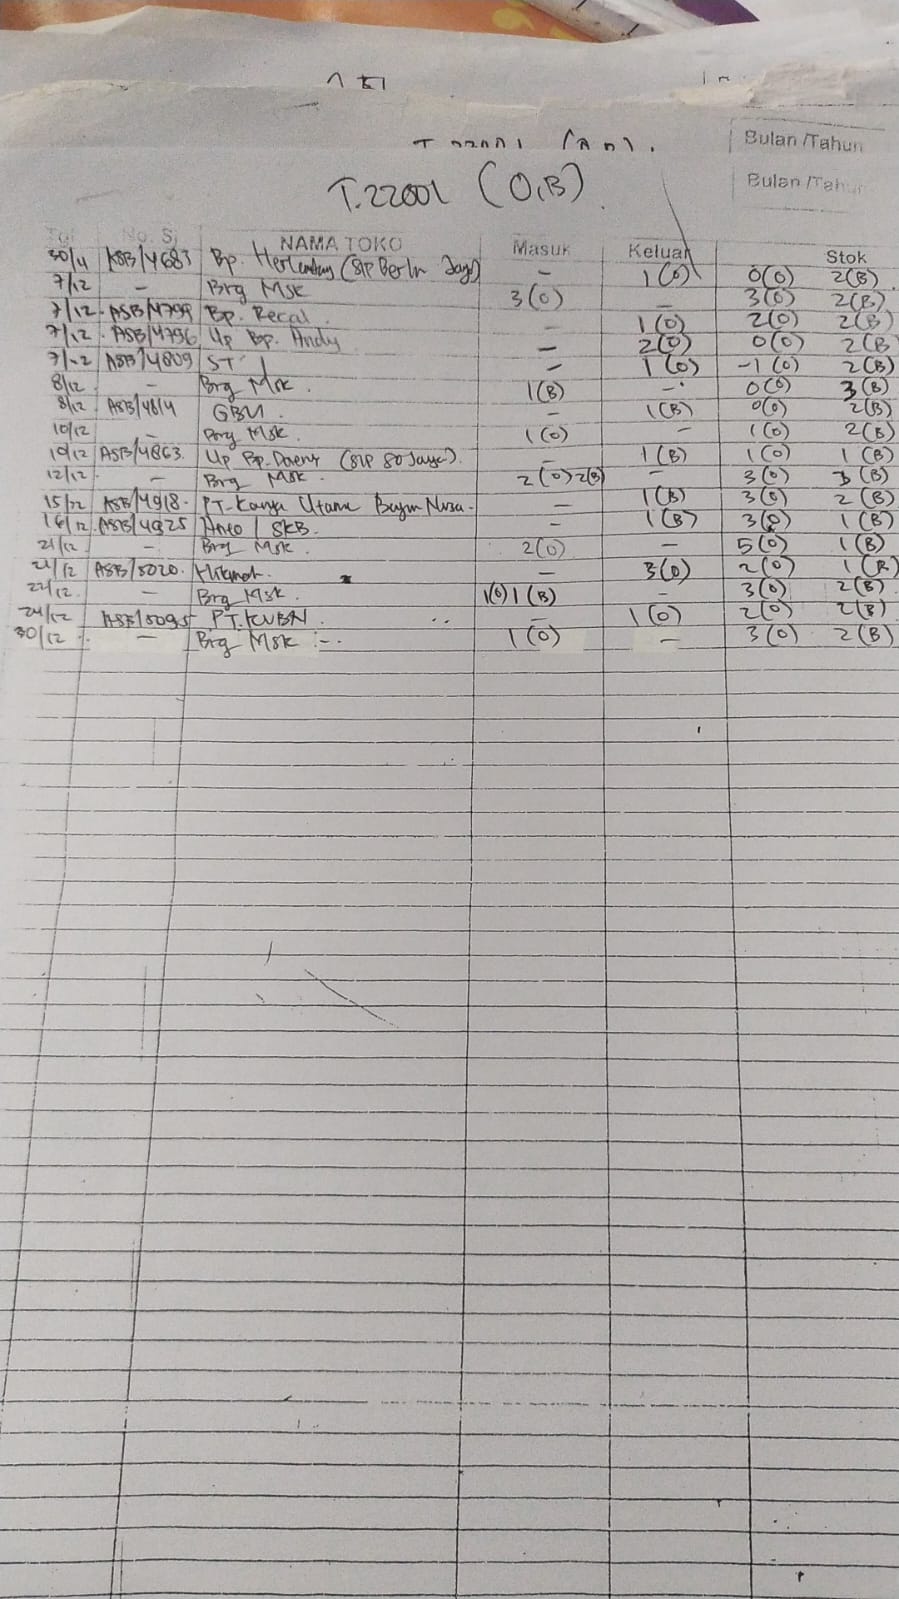 Bulan /Tahun
Bulan /Tahun
T.22001 (O,B)
Tgl No. Sj NAMA TOKO Masuk Keluar Stok
30/11 ASB/4683 Bp. (SIP Berln Jaya) - 1(O) 0(O) 2(B)
7/12 - Brg Msk 3(O) - 3(O) 2(B)
7/12 ASB/4799 Bp. Recal - 1(O) 2(O) 2(B)
7/12 ASB/4796 Up Bp. Andy - 2(O) 0(O) 2(B
7/12 ASB/4809 ST - 1(O) -1(O) 2(B)
8/12 - Brg Msk. 1(B) - 0(O) 3(B)
8/12 ASB/4814 GBU. - 1(B) 0(O) 2(B)
10/12 - Brg Msk. 1(O) - 1(O) 2(B)
10/12 ASB/4863. Up Bp. (SIP 80 Jaya). - 1(B) 1(O) 1(B)
12/12 - Brg Msk. 2(O) 2(B) - 3(O) 3(B)
15/12 ASB/4918. PT. Karya Utama - 1(B) 3(O) 2(B)
16/12. ASB/4925 / SKB. - 1(B) 3(O) 1(B)
21/12 - Brg Msk. 2(O) - 5(O) 1(B)
21/12 ASB/5020. Hikmah. - 3(O) 2(O) 1(B)
22/12. - Brg Msk. 1(O) 1(B) - 3(O) 2(B)
24/12 ASB/5095 PT. KVBN 1(O) 2(O) 2(B)
30/12 - Brg Msk 1(O) - 3(O) 2(B)